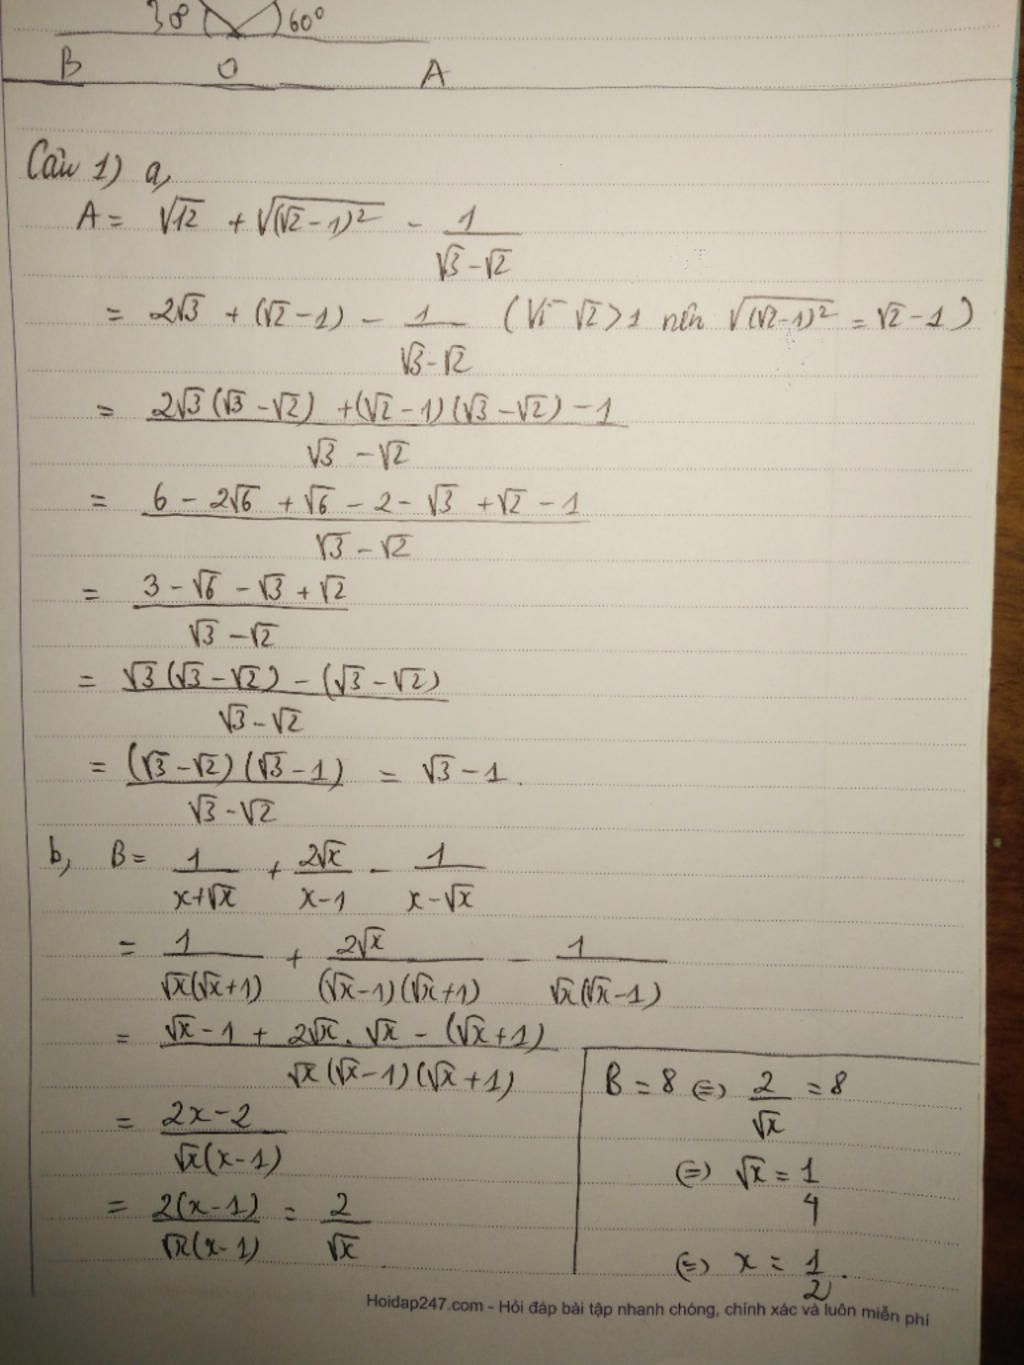 38 60°
B O A
Câu 1) a,
A = √12 + √((√2-1)²) - 1/(√3-√2)
= 2√3 + (√2-1) - 1/(√3-√2) (Vì √2>1 nên √((√2-1)²) = √2-1)
= (2√3(√3-√2) + (√2-1)(√3-√2) - 1)/(√3-√2)
= (6 - 2√6 + √6 - 2 - √3 + √2 - 1)/(√3-√2)
= (3 - √6 - √3 + √2)/(√3-√2)
= (√3(√3-√2) - (√3-√2))/(√3-√2)
= ((√3-√2)(√3-1))/(√3-√2) = √3-1.
b, B = 1/(x+√x) + 2√x/(x-1) - 1/(x-√x)
= 1/(√x(√x+1)) + 2√x/((√x-1)(√x+1)) - 1/(√x(√x-1))
= (√x-1 + 2√x.√x - (√x+1))/(√x(√x-1)(√x+1))
= (2x-2)/(√x(x-1))
= 2(x-1)/(√x(x-1)) = 2/√x
B = 8 ⇔ 2/√x = 8
⇔ √x = 1/4
⇔ x = 1/2.
Hoidap247.com - Hỏi đáp bài tập nhanh chóng, chính xác và luôn miễn phí